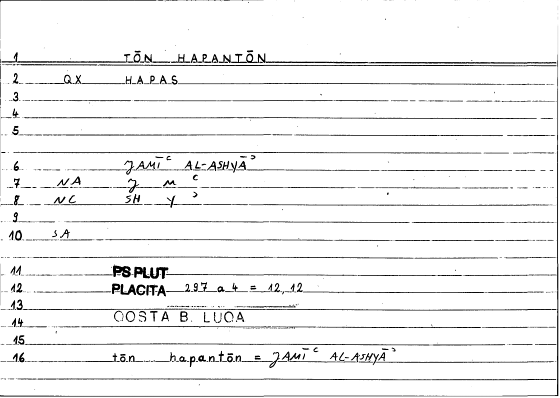 1 TŌN HAPANTŌN
2 QX HAPAS
3
4
5
6 JAMĪʿ AL-ASHYĀʾ
7 NA J M ʿ
8 NC SH Y ʾ
9
10 SA
11 PS PLUT
12 PLACITA 297 a 4 = 12,12
13
14 QOSTA B. LUQA
15
16 tōn hapantōn = JAMĪʿ AL-ASHYĀʾ